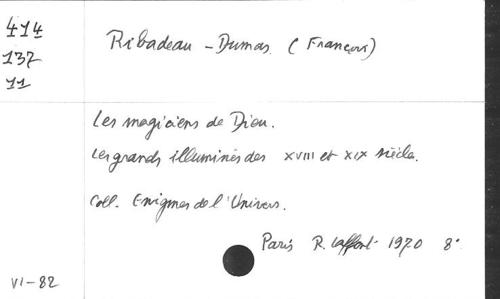 414
137
11
Ribadeau-Dumas (François)
Les magiciens de Dieu.
Les grands illuminés des XVIII et XIX siècle.
Coll. Enigmes de l'Univers.
Paris R. Laffont 1970 8°
VI-82